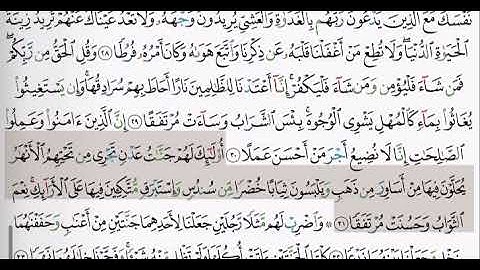 نَفْسَكَ مَعَ ٱلَّذِينَ يَدْعُونَ رَبَّهُم بِٱلْغَدَوٰةِ وَٱلْعَشِىِّ يُرِيدُونَ وَجْهَهُۥ وَلَا تَعْدُ عَيْنَاكَ عَنْهُمْ تُرِيدُ زِينَةَ
ٱلْحَيَوٰةِ ٱلدُّنْيَا وَلَا تُطِعْ مَنْ أَغْفَلْنَا قَلْبَهُۥ عَن ذِكْرِنَا وَٱتَّبَعَ هَوَىٰهُ وَكَانَ أَمْرُهُۥ فُرُطًا ٢٨ وَقُلِ ٱلْحَقُّ مِن رَّبِّكُمْ
فَمَن شَآءَ فَلْيُؤْمِن وَمَن شَآءَ فَلْيَكْفُرْ إِنَّآ أَعْتَدْنَا لِلظَّـٰلِمِينَ نَارًا أَحَاطَ بِهِمْ سُرَادِقُهَا وَإِن يَسْتَغِيثُوا۟
يُغَاثُوا۟ بِمَآءٍ كَٱلْمُهْلِ يَشْوِى ٱلْوُجُوهَ بِئْسَ ٱلشَّرَابُ وَسَآءَتْ مُرْتَفَقًا ٢٩ إِنَّ ٱلَّذِينَ ءَامَنُوا۟ وَعَمِلُوا۟
ٱلصَّـٰلِحَـٰتِ إِنَّا لَا نُضِيعُ أَجْرَ مَنْ أَحْسَنَ عَمَلًا ٣٠ أُو۟لَـٰٓئِكَ لَهُمْ جَنَّـٰتُ عَدْنٍ تَجْرِى مِن تَحْتِهِمُ ٱلْأَنْهَـٰرُ
يُحَلَّوْنَ فِيهَا مِنْ أَسَاوِرَ مِن ذَهَبٍ وَيَلْبَسُونَ ثِيَابًا خُضْرًا مِّن سُندُسٍ وَإِسْتَبْرَقٍ مُّتَّكِـِٔينَ فِيهَا عَلَى ٱلْأَرَآئِكِ نِعْمَ
ٱلثَّوَابُ وَحَسُنَتْ مُرْتَفَقًا ٣١ وَٱضْرِبْ لَهُم مَّثَلًا رَّجُلَيْنِ جَعَلْنَا لِأَحَدِهِمَا جَنَّتَيْنِ مِنْ أَعْنَـٰبٍ وَحَفَفْنَـٰهُمَا